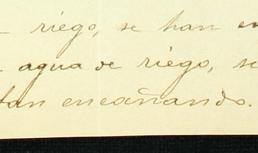 riego, se han en
agua de riego, se
tan encañando.